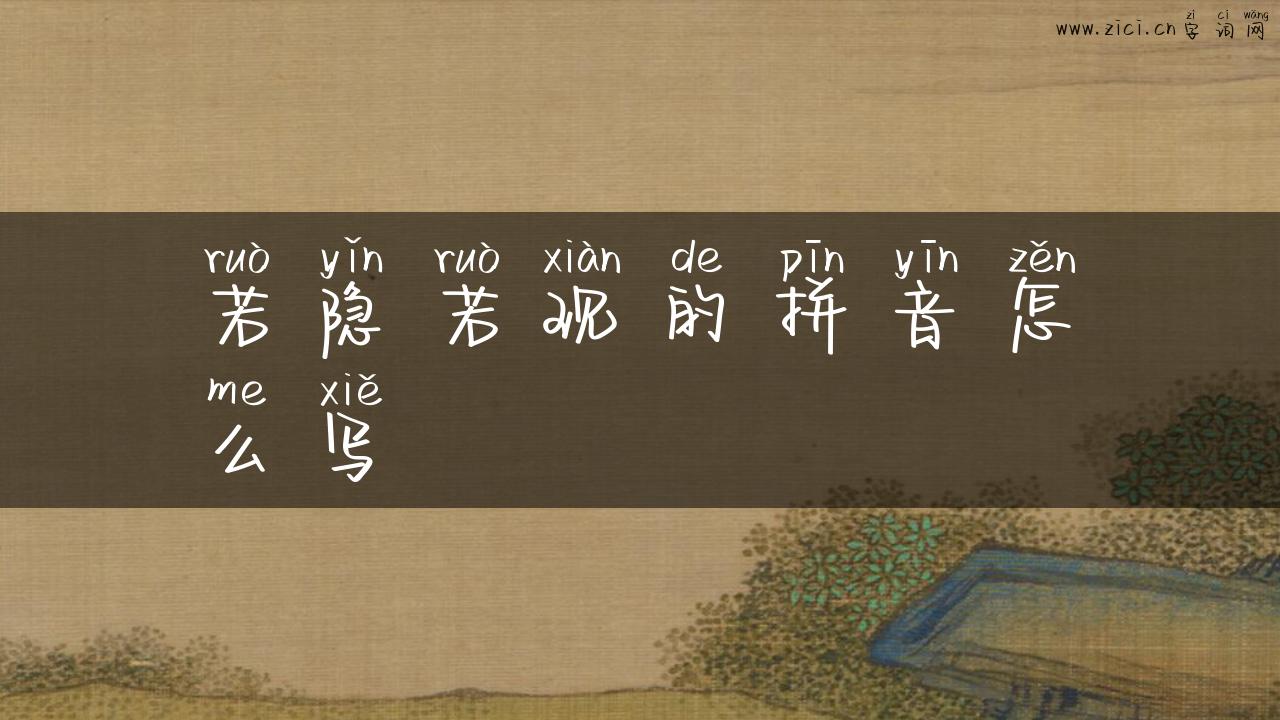 zì cí wǎng
www.zici.cn 字词网
ruò yǐn ruò xiàn de pīn yīn zěn
若隐若现的拼音怎
me xiě
么写